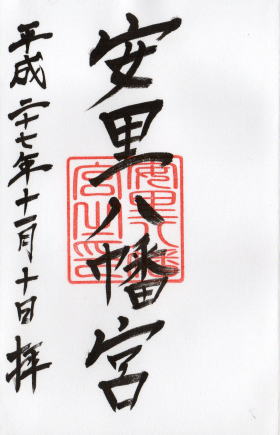 安里八幡宮
安里八幡
宮之印
平成二十七年十一月十日拝